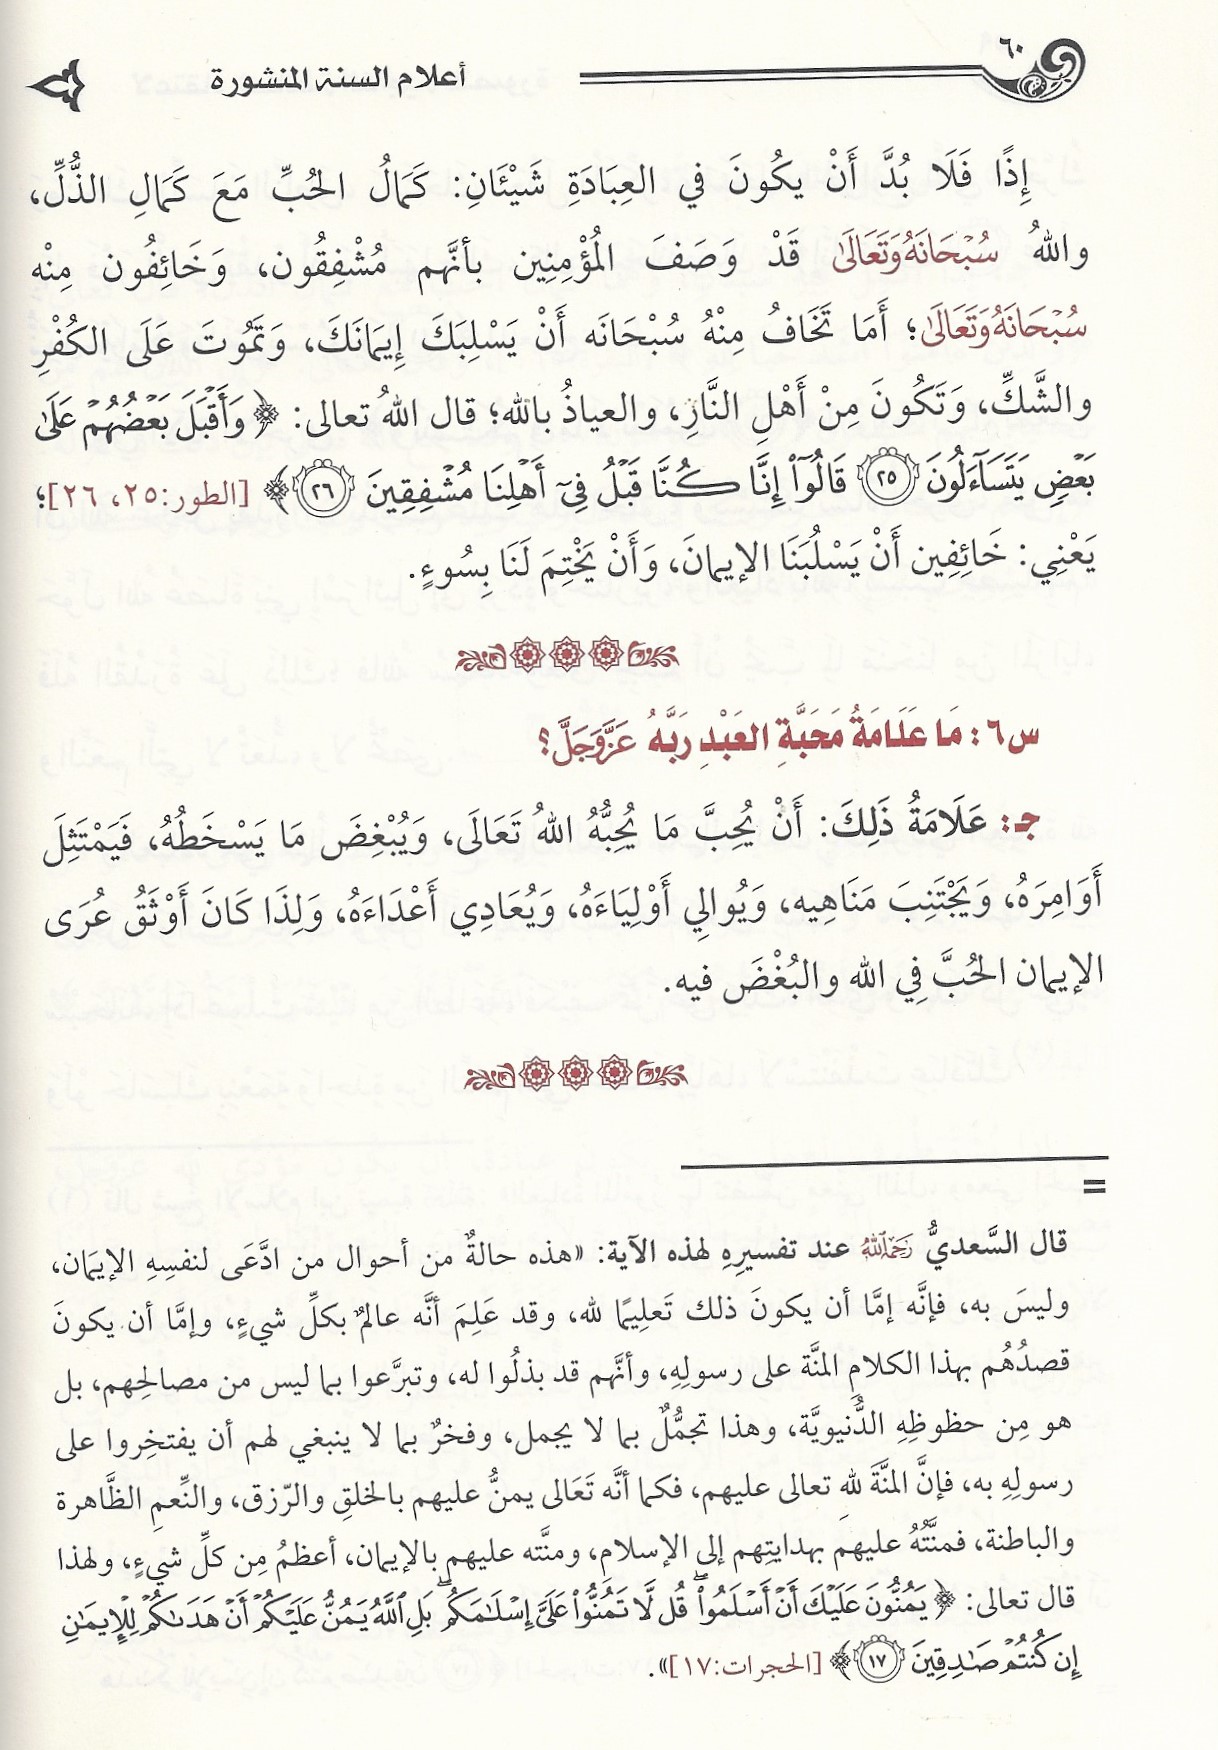 ٦٠
أعلام السنة المنشورة
إِذًا فَلَا بُدَّ أَنْ يكُونَ في العِبَادَةِ شَيْئَانِ: كَمَالُ الحُبِّ مَعَ كَمَالِ الذُّلِّ،
واللهُ سُبْحَانَهُ وَتَعَالَى قَدْ وَصَفَ المُؤْمِنِين بأنَّهم مُشْفِقُون، وَخَائِفُون مِنْه
سُبْحَانَهُ وَتَعَالَى؛ أَمَا تَخَافُ مِنْهُ سُبْحَانَه أَنْ يَسْلِبَكَ إِيمَانَكَ، وَتَمُوتَ عَلَى الكُفْرِ
والشَّكِّ، وَتَكُونَ مِنْ أَهْلِ النَّارِ، والعياذُ بالله؛ قال اللهُ تعالى: ﴿ وَأَقْبَلَ بَعْضُهُمْ عَلَىٰ
بَعْضٍ يَتَسَآءَلُونَ ٢٥ قَالُوٓا۟ إِنَّا كُنَّا قَبْلُ فِىٓ أَهْلِنَا مُشْفِقِينَ ٢٦ ﴾ [الطور:٢٥، ٢٦]؛
يَعْنِي: خَائِفِين أَنْ يَسْلُبَنَا الإيمانَ، وَأَنْ يَخْتِمَ لَنَا بِسُوءٍ.
س٦: مَا عَلَامَةُ مَحَبَّةِ العَبْدِ رَبَّهُ عَزَّوَجَلَّ؟
جـ: عَلَامَةُ ذَلِكَ: أَنْ يُحِبَّ مَا يُحِبُّهُ اللهُ تَعَالَى، وَيُبْغِضَ مَا يَسْخَطُهُ، فَيَمْتَثِلَ
أَوَامِرَهُ، وَيَجْتَنِبَ مَنَاهِيه، وَيُوالِي أَوْلِيَاءَهُ، وَيُعَادِي أَعْدَاءَهُ، وَلِذَا كَانَ أَوْثَقُ عُرَى
الإيمان الحُبَّ فِي الله والبُغْضَ فيه.
=
قال السَّعديُّ رَحِمَهُ اللَّهُ عند تفسيرِهِ لهذه الآية: «هذه حالةٌ من أحوال من ادَّعَى لنفسِهِ الإيمَان،
وليسَ به، فإنَّه إمَّا أن يكونَ ذلك تَعلِيمًا لله، وقد عَلِمَ أنَّه عالمٌ بكلِّ شيءٍ، وإمَّا أن يكونَ
قصدُهُم بهذا الكلامِ المنَّة على رسولِهِ، وأنَّهم قد بذلُوا له، وتبرَّعوا بما ليس من مصالحِهم، بل
هو مِن حظوظِهِ الدُّنيويَّة، وهذا تجمُّلٌ بما لا يجمل، وفخرٌ بما لا ينبغي لهم أن يفتخِروا على
رسولِهِ به، فإنَّ المنَّةَ للهِ تعالى عليهم، فكما أنَّه تَعَالى يمنُّ عليهم بالخلقِ والرّزق، والنِّعمِ الظَّاهرة
والباطنة، فمنَّتُهُ عليهم بهدايتِهم إلى الإسلامِ، ومنَّته عليهم بالإيمان، أعظمُ مِن كلِّ شيءٍ، ولهذا
قال تعالى: ﴿ يَمُنُّونَ عَلَيْكَ أَنْ أَسْلَمُوا۟ ۖ قُل لَّا تَمُنُّوا۟ عَلَىَّ إِسْلَـٰمَكُم ۖ بَلِ ٱللَّهُ يَمُنُّ عَلَيْكُمْ أَنْ هَدَىٰكُمْ لِلْإِيمَـٰنِ
إِن كُنتُمْ صَـٰدِقِينَ ١٧ ﴾ [الحجرات:١٧]».